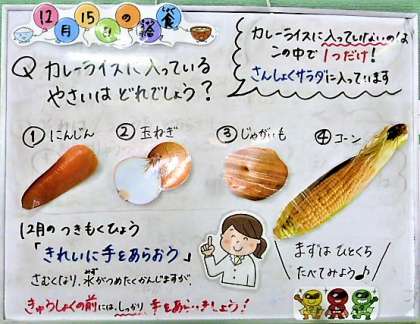 12月15日の給食
カレーライスに入っていないのは
この中で1つだけ!
さんしょくサラダに入っています
Q カレーライスに入っている
やさいは どれでしょう?
① にんじん ② 玉ねぎ ③ じゃがいも ④ コーン
12月の つきもくひょう
「きれいに 手を あらおう」
さむくなり、水がつめたくかんじますが、
きゅうしょくの前には、しっかり 手を あらいましょう!
まずは ひとくち
たべてみよう♪